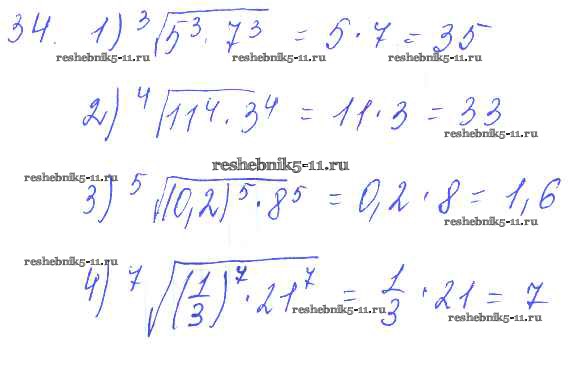 34. 1) ³√(5³·7³) = 5·7 = 35
reshebnik5-11.ru reshebnik5-11.ru reshebnik5-11.ru
2) ⁴√(11⁴·3⁴) = 11·3 = 33
reshebnik5-11.ru
reshebnik5-11.ru
reshebnik5-11.ru
3) ⁵√((0,2)⁵·8⁵) = 0,2·8 = 1,6
reshebnik5-11.ru
reshebnik5-11.ru
4) ⁷√((1/3)⁷·21⁷) = 1/3·21 = 7
reshebnik5-11.ru reshebnik5-11.ru